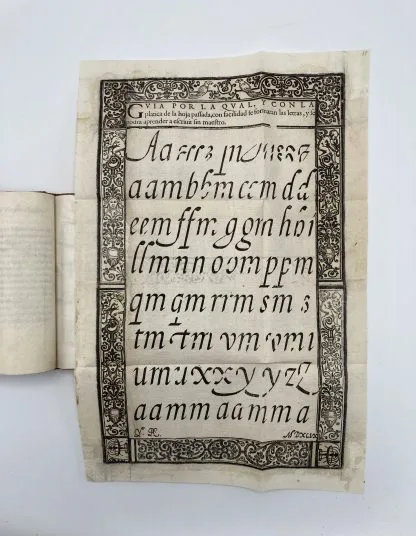 GVIA POR LA QVAL, Y CON LA
platica de la hoja passada, con facilidad se formaran las letras, y se
podra aprender a escriuir sin maestro.
Aa
aambbmccmdd
eemffmggmhhi
llmnnoomppm
qmqmrrmsms
tmtmvmvmi
umxxyyzz
aammaamma